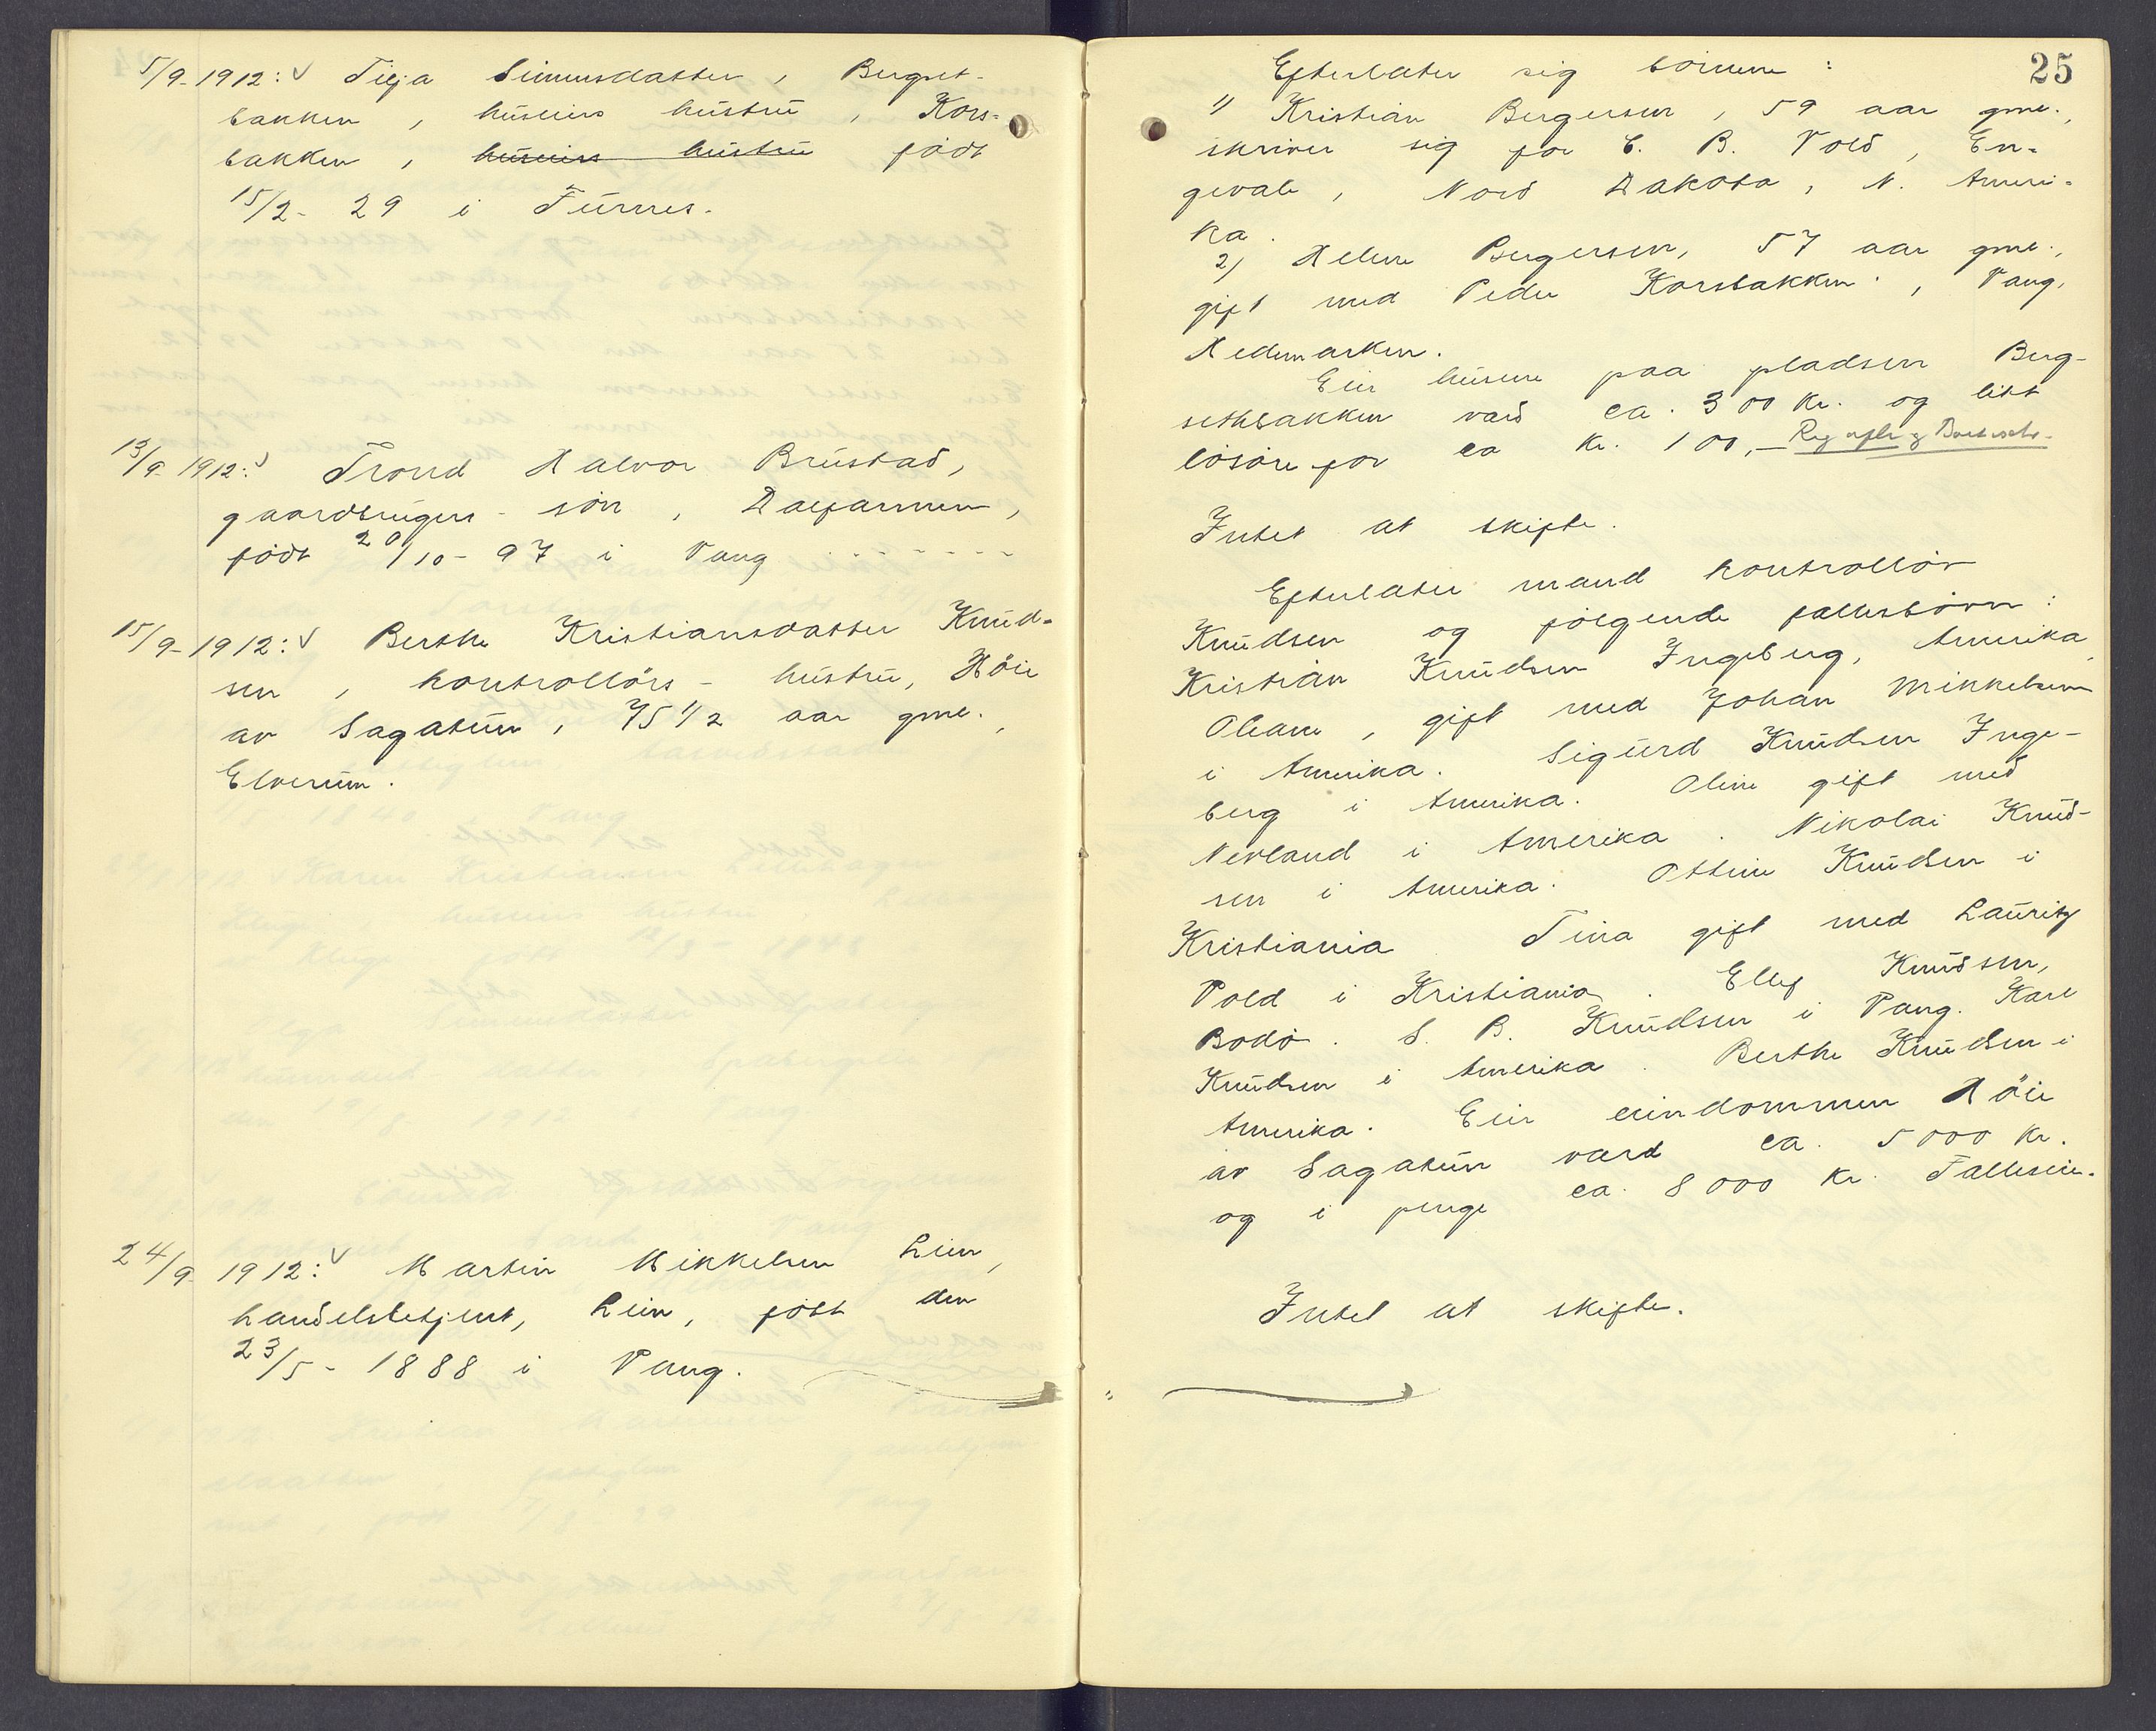 5/9-1912: Tilja Simensdatter, Bergset-
bakken, huseiers hustru, Kors-
bakken, huseiers hustru født
15/2- 29 i Furnes.
13/9-1912: Trond Halvor Brustad,
gaardbrugers - søn, Dalfarmen,
født 20/10- 97 i Vang
15/9-1912: Berthe Kristiansdatter Knud-
sen, kontrollørs - hustru, Höie
av Sagatun, 75 1/2 aar gml.,
Elverum.
24/9 1912: Martin Mikkelsen Lien,
handelsbetjent, Lien, født den
23/5- 1888 i Vang.
25
Efterlater sig børnene:
1/ Kristian Bergersen, 59 aar gml.,
skriver sig for C. B. Vold, En-
gevale, Nord Dakota, N. Ameri-
ka.
2/ Helene Bergersen, 57 aar gml.,
gift med Peder Korsbakken, Vang,
Hedemarken.
Eier husene paa pladsen Berg-
sethbakken værd ca. 300 Kr. og litt
løsøre for ca Kr. 100,-
Intet at skifte.
Efterlater mand kontrollør
Knudsen og følgende fællesbørn:
Kristian Knudsen Ingeberg, Amerika,
Oleane, gift med Johan Mikkelsen
i Amerika. Sigurd Knudsen Inge-
berg i Amerika. Oline gift med
Nerland i Amerika. Nikolai Knud-
sen i Amerika. Ottine Knudsen i
Kristiania Tina gift med Lauritz
Vold i Kristiania. Ellef Knudsen,
Bodø. S. B. Knudsen i Vang. Karl
Knudsen i Amerika. Berthe Knudsen i
Amerika. Eier eiendommen Höie
av Sagatun værd ca. 5000 Kr.
og i penge ca. 8000 Kr. Fælleseie.
Intet at skifte.